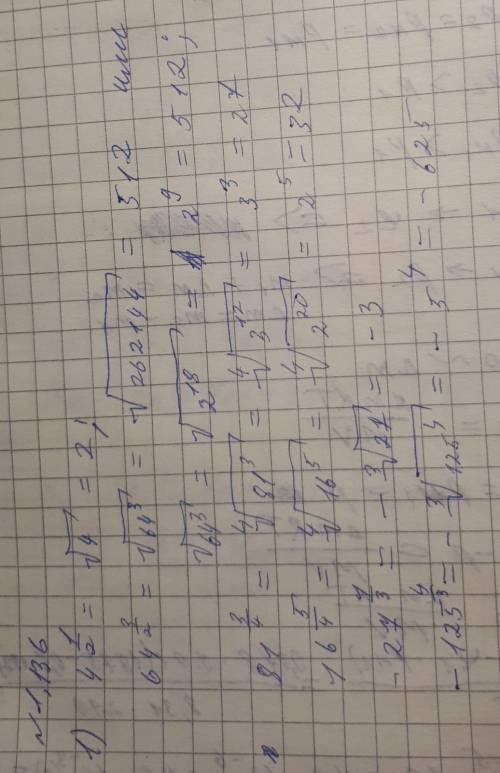 №1,136
1) 4^{\frac{1}{2}} = \sqrt{4} = 2;
64^{\frac{3}{2}} = \sqrt{64^3} = \sqrt{262144} = 512 или
\sqrt{64^3} = \sqrt{2^{18}} = 2^9 = 512;
81^{\frac{3}{4}} = \sqrt[4]{81^3} = \sqrt[4]{3^{12}} = 3^3 = 27
16^{\frac{5}{4}} = \sqrt[4]{16^5} = \sqrt[4]{2^{20}} = 2^5 = 32
-27^{\frac{1}{3}} = -\sqrt[3]{27} = -3
-125^{\frac{4}{3}} = -\sqrt[3]{125^4} = -5^4 = -625